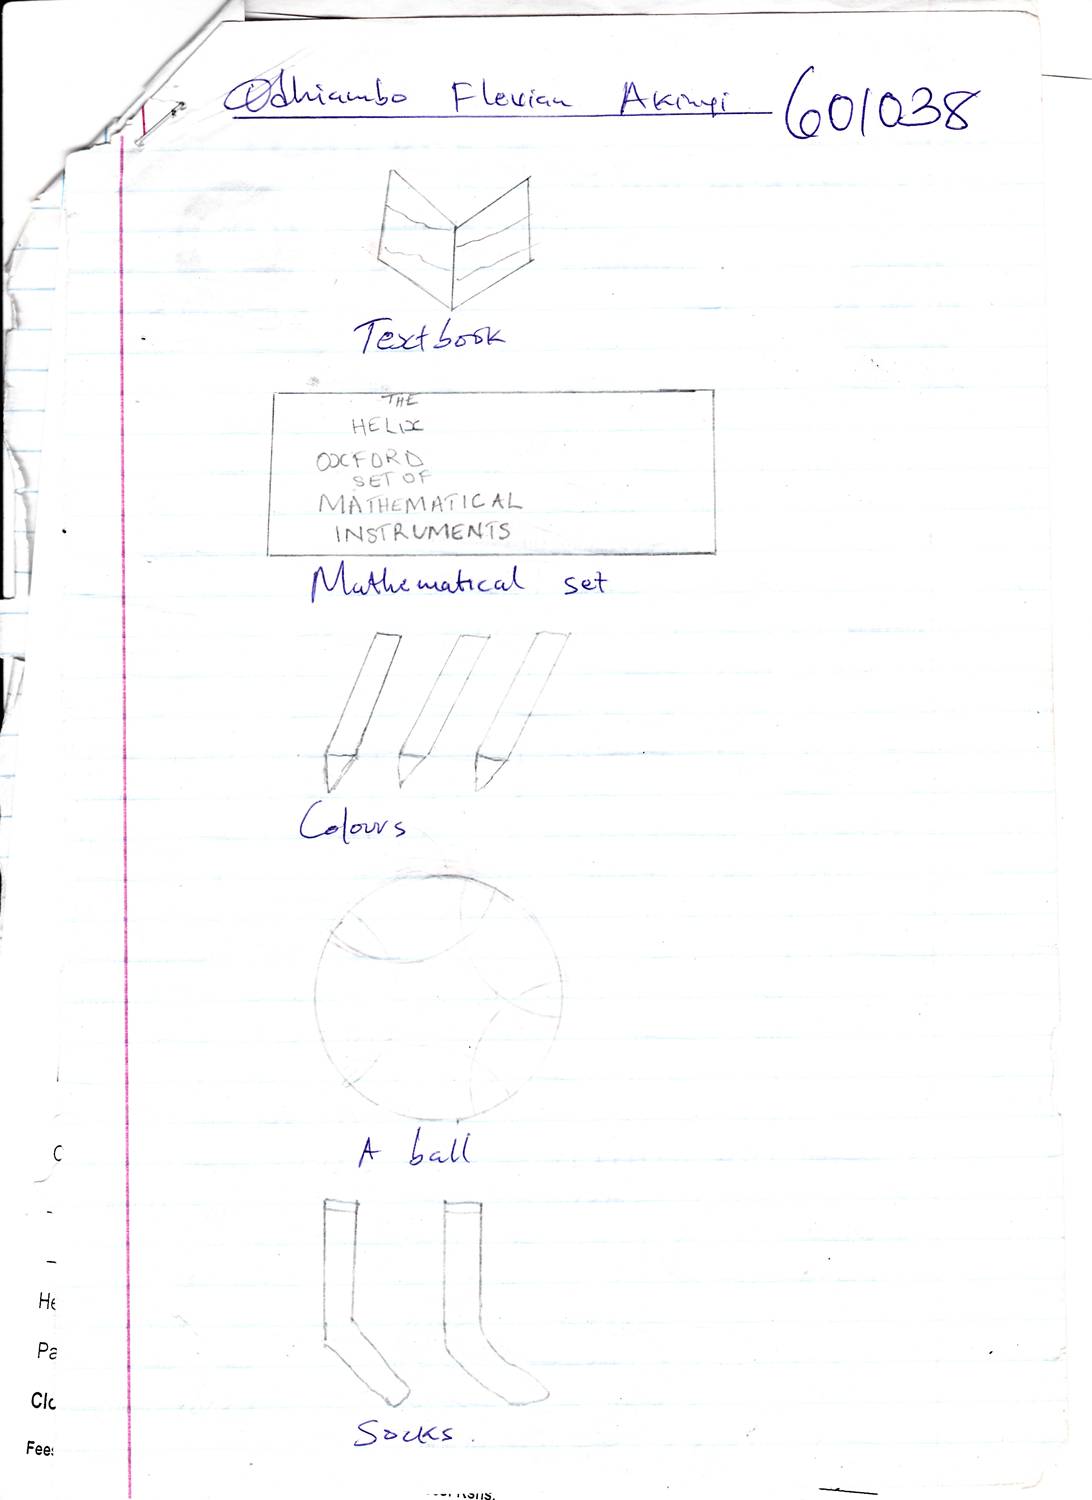 Odhiambo Flevian Akinyi 601038
Textbook
THE
HELIX
OXFORD
SET OF
MATHEMATICAL
INSTRUMENTS
Mathematical set
Colours
A ball
C
He
Pa
Socks.
Clc
Fees